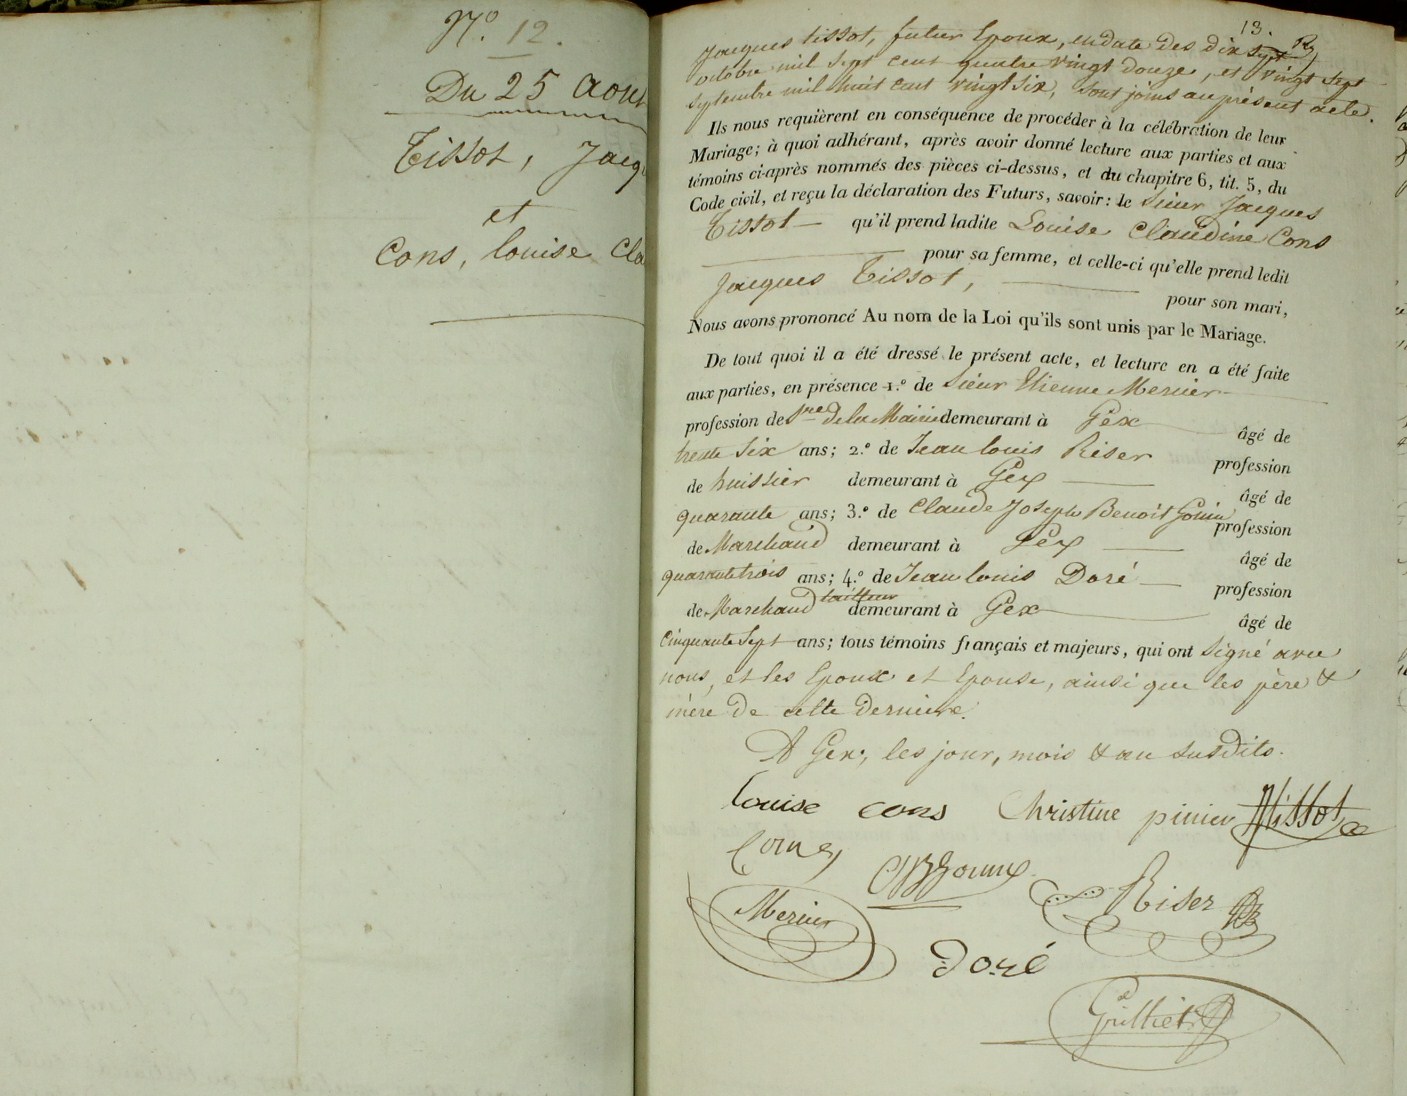 N.º 12.
Du 25 aout
Tissot, Jacq
et
Cons, louise Cla
13.
Jacques tissot, futur Epoux, en date des dix sept
octobre mil sept cent quatre vingt douze, et vingt sept
septembre mil huit cent vingt six, sont joins au présent acte.
Ils nous requièrent en conséquence de procéder à la célébration de leur
Mariage; à quoi adhérant, après avoir donné lecture aux parties et aux
témoins ci-après nommés des pièces ci-dessus, et du chapitre 6, tit. 5, du
Code civil, et reçu la déclaration des Futurs, savoir: le Sieur Jacques
Tissot — qu'il prend ladite Louise Claudine Cons
pour sa femme, et celle-ci qu'elle prend ledit
Jacques Tissot,
pour son mari,
Nous avons prononcé Au nom de la Loi qu'ils sont unis par le Mariage.
De tout quoi il a été dressé le présent acte, et lecture en a été faite
aux parties, en présence 1.º de Sieur Etienne Mercier
profession de Sre de la Mairie demeurant à Gex
âgé de
trente six ans; 2.º de Jean louis Riser
profession
de huissier demeurant à Gex
âgé de
quarante ans; 3.º de Claude Joseph Benoit
profession
de Marchand demeurant à Gex
âgé de
quarante trois ans; 4.º de Jean louis Doré
profession
de Marchand tailleur demeurant à Gex
âgé de
cinquante Sept ans; tous témoins français et majeurs, qui ont signé avec
nous, et les Epoux et Epouse, ainsi que les père &
mère de cette dernière.
A Gex, les jour, mois & an susdits.
Louise cons Christine pinier JTissot
Cons
Riser
Mercier
Doré